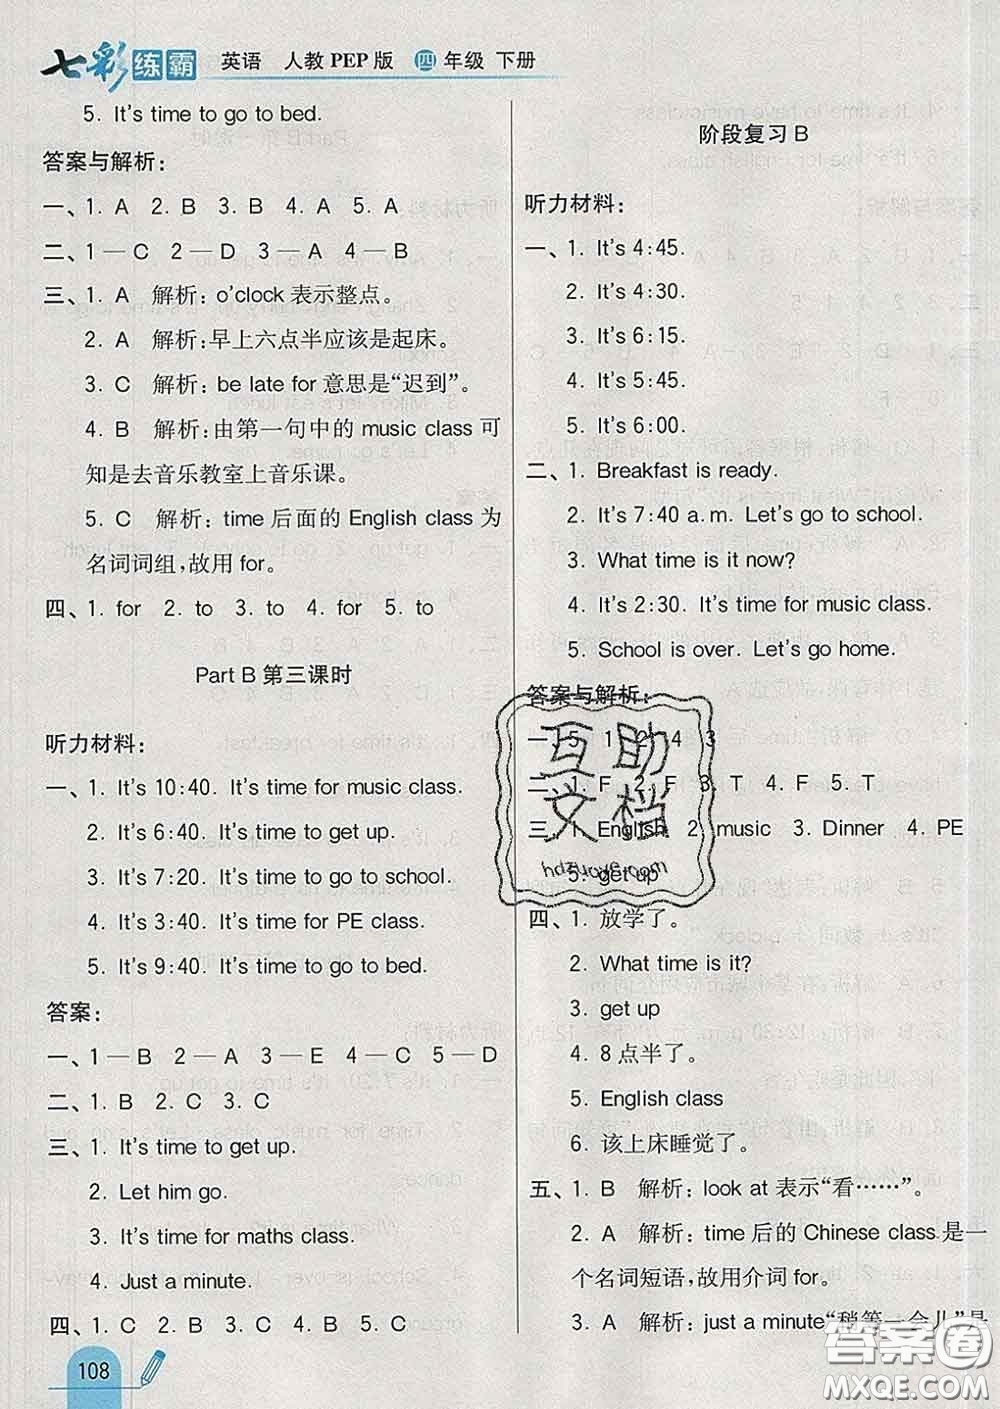 七彩练霸 英语 人教PEP版 四年级 下册
5. It's time to go to bed.
答案与解析:
一、1. A 2. B 3. B 4. A 5. A
二、1—C 2—D 3—A 4—B
三、1. A 解析:o'clock 表示整点。
2. A 解析:早上六点半应该是起床。
3. C 解析:be late for 意思是“迟到”。
4. B 解析:由第一句中的 music class 可
知是去音乐教室上音乐课。
5. C 解析:time 后面的 English class 为
名词词组,故用 for。
四、1. for 2. to 3. to 4. for 5. to
Part B 第三课时
听力材料:
一、1. It's 10:40. It's time for music class.
2. It's 6:40. It's time to get up.
3. It's 7:20. It's time to go to school.
4. It's 3:40. It's time for PE class.
5. It's 9:40. It's time to go to bed.
答案:
一、1—B 2—A 3—E 4—C 5—D
二、1. B 2. C 3. C
三、1. It's time to get up.
2. Let him go.
3. It's time for maths class.
4. Just a minute.
四、1. C 2. B 3. C 4. B 5. C
108
阶段复习 B
听力材料:
一、1. It's 4:45.
2. It's 4:30.
3. It's 6:15.
4. It's 5:45.
5. It's 6:00.
二、1. Breakfast is ready.
2. It's 7:40 a.m. Let's go to school.
3. What time is it now?
4. It's 2:30. It's time for music class.
5. School is over. Let's go home.
答案与解析:
一、5 1 2 4 3
二、1. F 2. F 3. T 4. F 5. T
三、1. English 2. music 3. Dinner 4. PE
5. get up
四、1. 放学了。
2. What time is it?
3. get up
4. 8 点半了。
5. English class
6. 该上床睡觉了。
五、1. B 解析:look at 表示“看……”。
2. A 解析:time 后的 Chinese class 是一
个名词短语,故用介词 for。
3. A 解析:just a minute“稍等一会儿”是
互助
文档
hdzuoye.com
答案圈
MXQE.COM